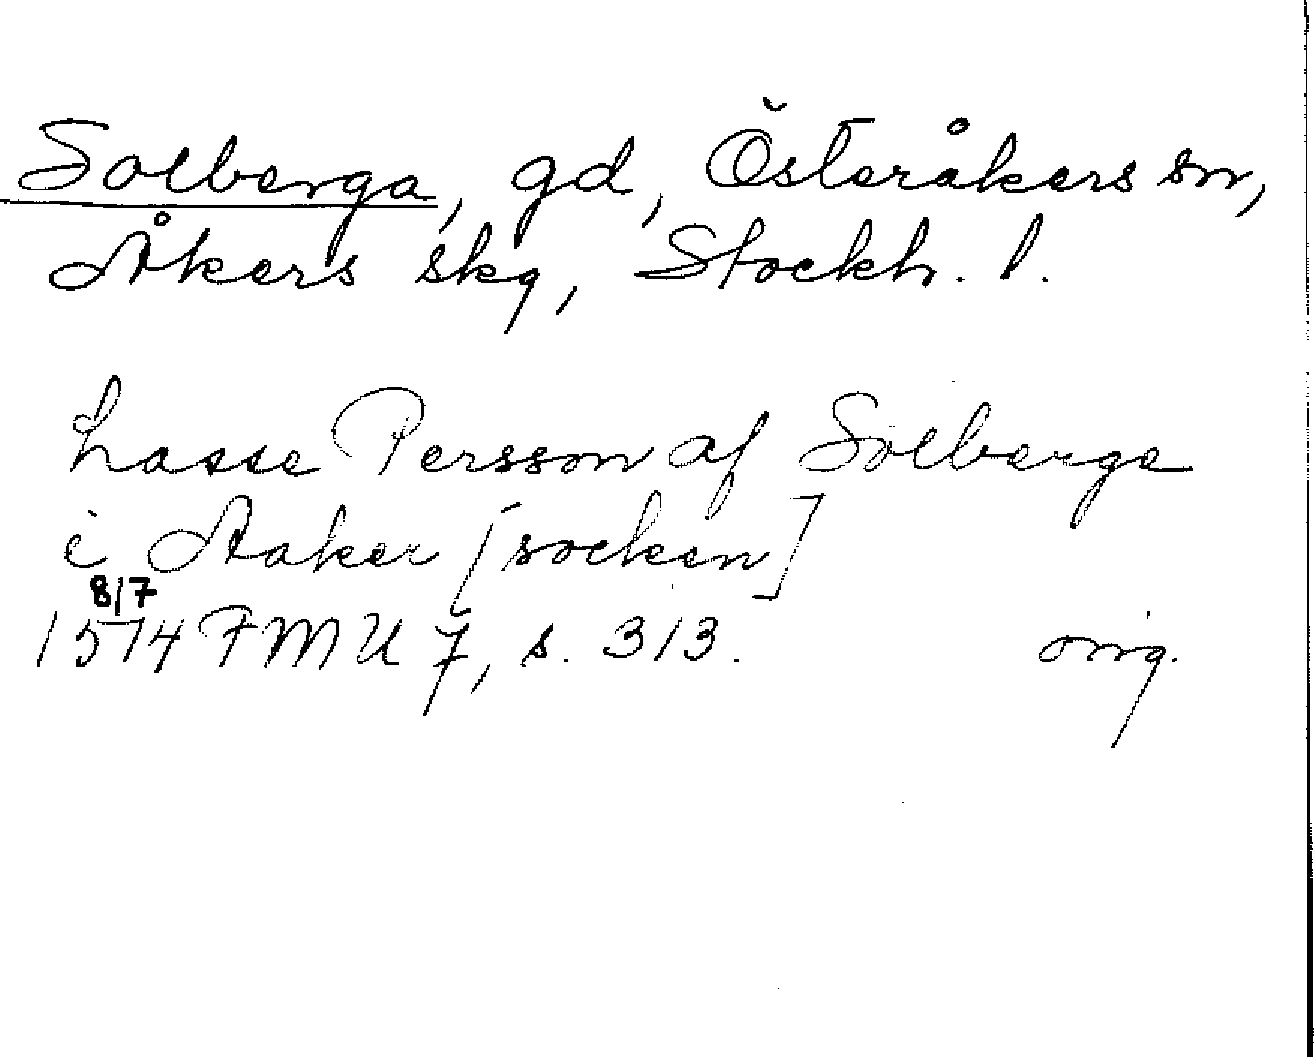 Solberga, gd, Österåkers sn,
Åkers skg, Stockh. l.
Lasse Persson af Solberge
i Aaker [socken]
8/7
1574 FMU 7, s. 313. orig.